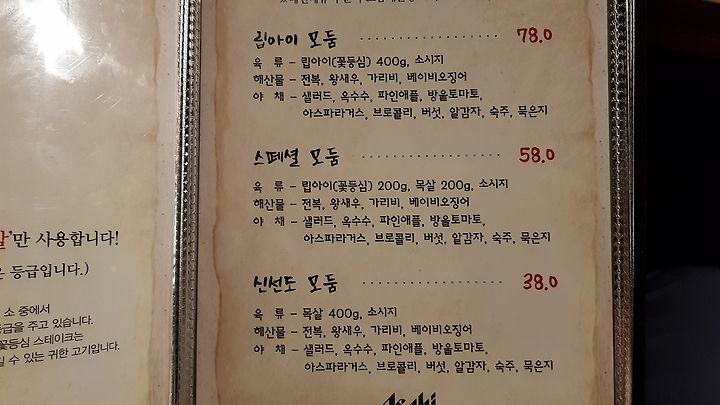 립아이 모둠 ···················· 78.0
육 류 – 립아이(꽃등심) 400g, 소시지
해산물 – 전복, 왕새우, 가리비, 베이비오징어
야 채 – 샐러드, 옥수수, 파인애플, 방울토마토,
아스파라거스, 브로콜리, 버섯, 알감자, 숙주, 묵은지
스페셜 모둠 ···················· 58.0
육 류 – 립아이(꽃등심) 200g, 목살 200g, 소시지
해산물 – 전복, 왕새우, 가리비, 베이비오징어
야 채 – 샐러드, 옥수수, 파인애플, 방울토마토,
아스파라거스, 브로콜리, 버섯, 알감자, 숙주, 묵은지
신선도 모둠 ···················· 38.0
육 류 – 목살 400g, 소시지
해산물 – 전복, 왕새우, 가리비, 베이비오징어
야 채 – 샐러드, 옥수수, 파인애플, 방울토마토,
아스파라거스, 브로콜리, 버섯, 알감자, 숙주, 묵은지
Asahi
'만 사용합니다!
등급입니다.)
소 중에서
등급을 주고 있습니다.
꽃등심 스테이크는
수 있는 귀한 고기입니다.